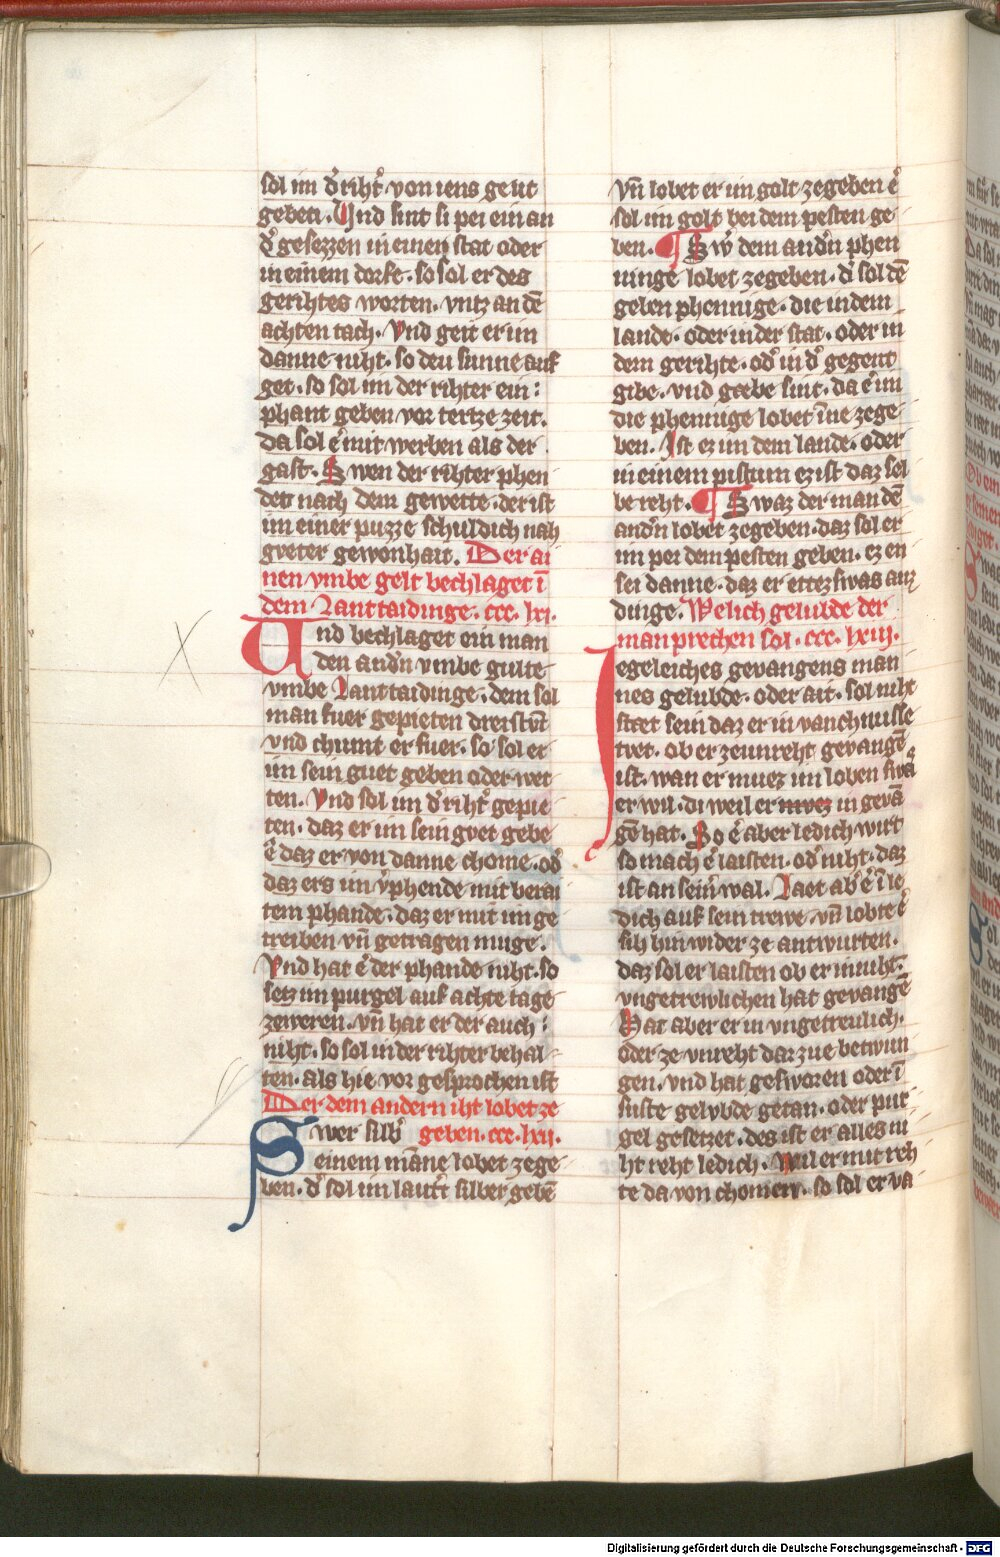 sol im d͛ riht͛ von iens ge ut
geben. Vnd sint si pei ein an
d͛ gesezzen in einen stat oder
in einem dorfe. so sol er des
gerihtes worten. vntz an dē
achten tach. Vnd geit er im
danne niht. so deu sunne auf
get. so sol im der rihter ein:
phant geben vor tertze zeit.
da sol e͛ mit werben als der
gast. Swen der rihter phen
det nach dem gewette. der ist
im einer puzze schuldich nah
gveter gewonhait. Der ai
nen vmbe gelt bechlaget ī
dem Lanttaidinge. ccc. lxi.
Vnd bechlaget ein man
den and͛n vmbe gulte
vmbe Lanttaidinge. dem sol
man fuer gepieten dreistūt
vnd chumt er fuer. so sol er
im sein guet geben oder wet
ten. Vnd sol im d͛ riht͛ gepie
ten. daz er im sein gvet gebe
e͛ daz er von danne chome. od͛
daz ers im v͛phende mit berai
tem phande. daz er mit im ge
treiben vn̄ getragen muge.
Vnd hat e͛ der phande niht. so
setz im purgel auf achte tage
zeweren. vn̄ hat er der auch:
niht. so sol in der rihter behal
ten. als hie vor gesprochen ist
Der dem andern iht lobet ze
Swer silb͛ geben. ccc. lxii.
einem māne lobet zege
ben. d͛ sol im laut͛t silber gebē
vn̄ lobet er im golt zegeben e͛
sol im golt bei dem pesten ge
ben. Sw͛ dem and͛n phen
ninge lobet zegeben. d͛ sol dē
geben phennige. die in dem
lande. oder in der stat. oder in
dem gerihte. od͛ in d͛ gegent
gibe. vnd gæbe sint. da e͛ im
die phennige lobet īne zege
ben. Ist ez im dem lande. oder
in einem pistum ez ist daz sel
be reht. Swaz der man dē
and͛n lobet zegeben. daz sol er
im per dem pesten geben. ez en
sei danne. daz er ettez swas auz
dinge. Welich gelubde der
man prechen sol. ccc. lxiij.
Iegeleiches gevangens man
nes gelubde. oder ait. sol niht
stæt sein daz er in vanchnusse
tvet. ob er ze unreht gevangē
ist. wan er muez im loben swa
er wil. di weil er muez in gevā
gē hat. So e͛ aber ledich wirt
so mach e͛ laisten. od͛ niht. daz
ist an sein͛ wal. Laet ab͛ e͛ ī le
dich auf sein trewe. vn̄ lobte e͛
sih hin wider ze antwurten.
daz sol er laisten ob er in niht.
vngetrewlichen hat gevangē
Hat aber er in vngetreulich.
oder ze vnreht dar zue betwun
gen. vnd hat gesworen oder ī
suste gelvbde getan. oder pur
gel gesetzet. des ist er alles ni
ht reht ledich. Weil er mit reh
te da von chomen. so sol er va
Digitalisierung gefördert durch die Deutsche Forschungsgemeinschaft - DFG